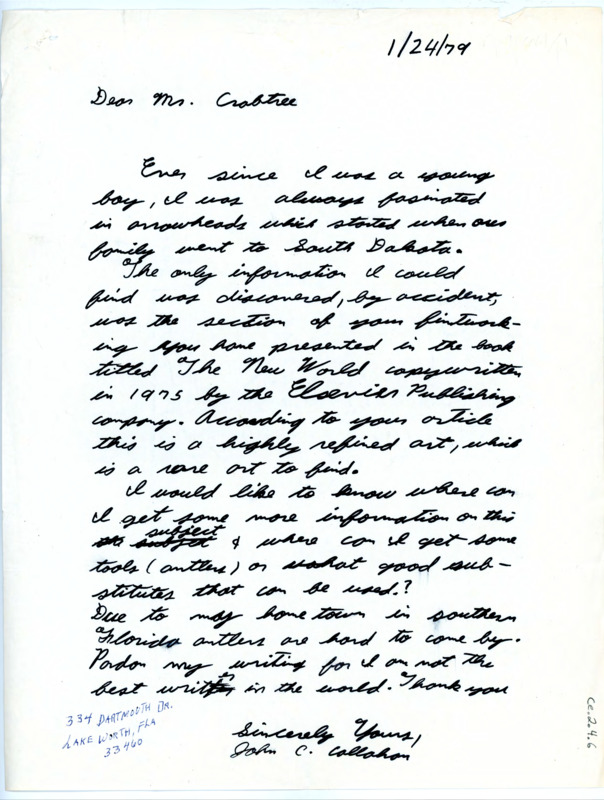 1/24/79
Dear Mr. Crabtree
Ever since I was a young
boy, I was always fasinated
in arrowheads which started when our
family went to South Dakota.
The only information I could
find was discovered, by accident,
was the section of your flintwork-
ing you have presented in the book
titled The New World copywritten
in 1975 by the Elsevier Publishing
company. According to your article
this is a highly refined art, which
is a rare art to find.
I would like to know where can
I get some more information on this
subject & where can I get some
tools (antlers) or what good sub-
stitutes that can be used.?
Due to my home town in southern
Florida antlers are hard to come by.
Pardon my writing for I am not the
best writer in the world. Thank you
Sincerely Yours,
John C. Callahan
334 DARTMOUTH DR.
LAKE WORTH, FLA
33460
Ce.2.4.6